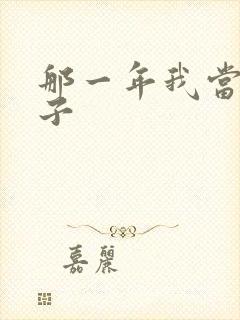 那一年我當
子
嘉麗